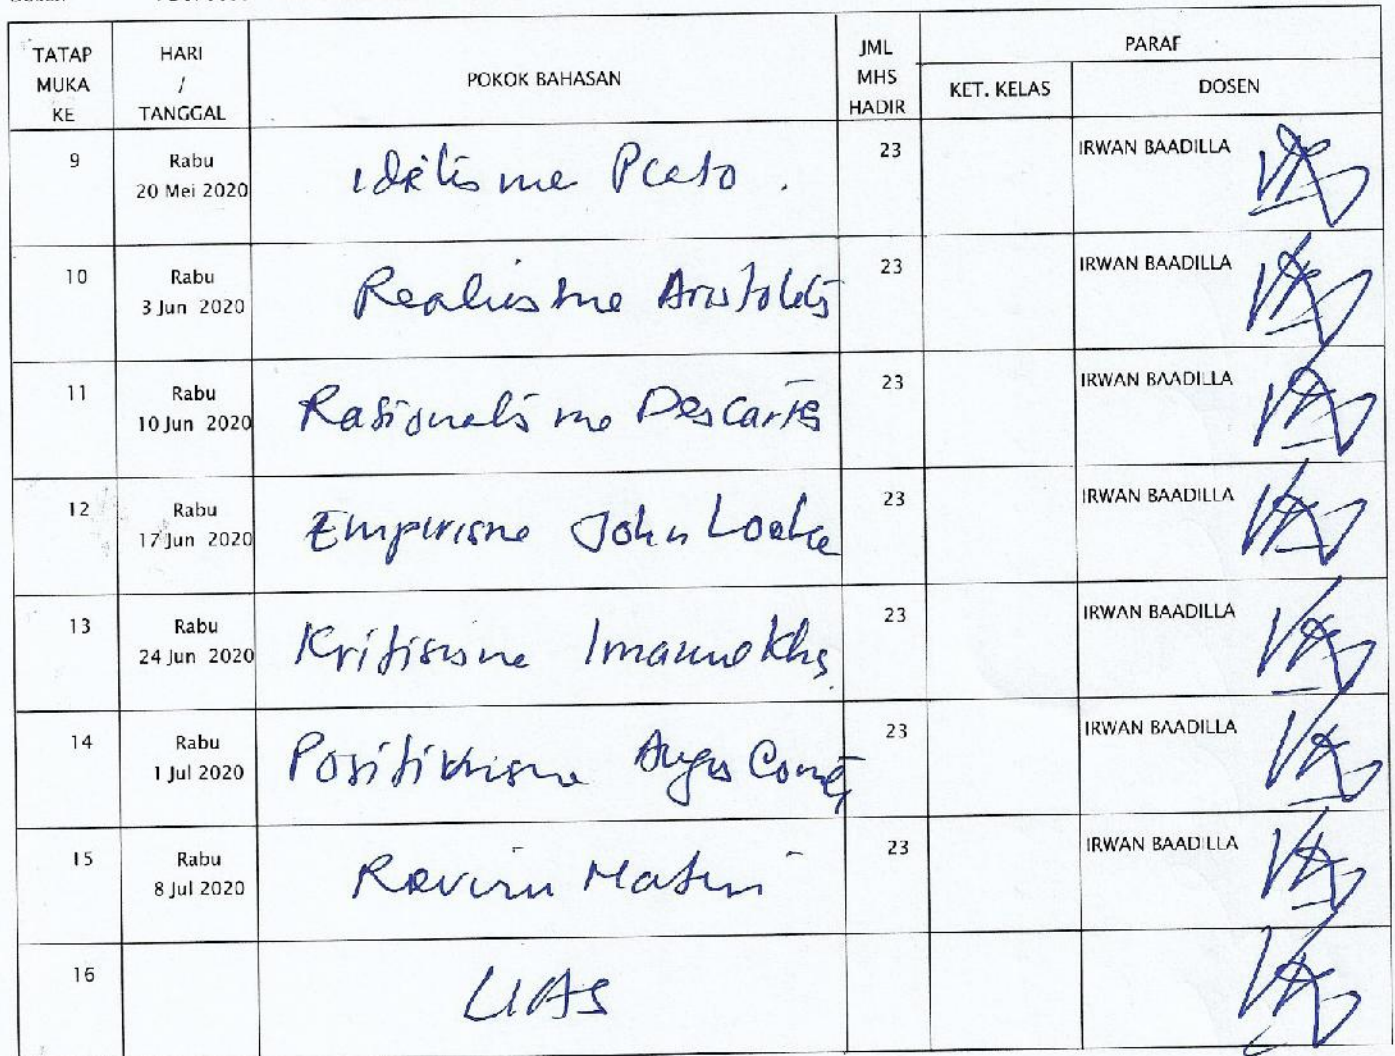 TATAP MUKA KE
HARI / TANGGAL
POKOK BAHASAN
JML MHS HADIR
PARAF
KET. KELAS
DOSEN
9
Rabu
20 Mei 2020
Idelisme Plato .
23
IRWAN BAADILLA
10
Rabu
3 Jun 2020
Realisme Aristoteles
23
IRWAN BAADILLA
11
Rabu
10 Jun 2020
Rasionalisme Descartes
23
IRWAN BAADILLA
12
Rabu
17 Jun 2020
Empirisme John Locke
23
IRWAN BAADILLA
13
Rabu
24 Jun 2020
Kritisisme
23
IRWAN BAADILLA
14
Rabu
1 Jul 2020
Positivisme Comte
23
IRWAN BAADILLA
15
Rabu
8 Jul 2020
Materi
23
IRWAN BAADILLA
16
UAS